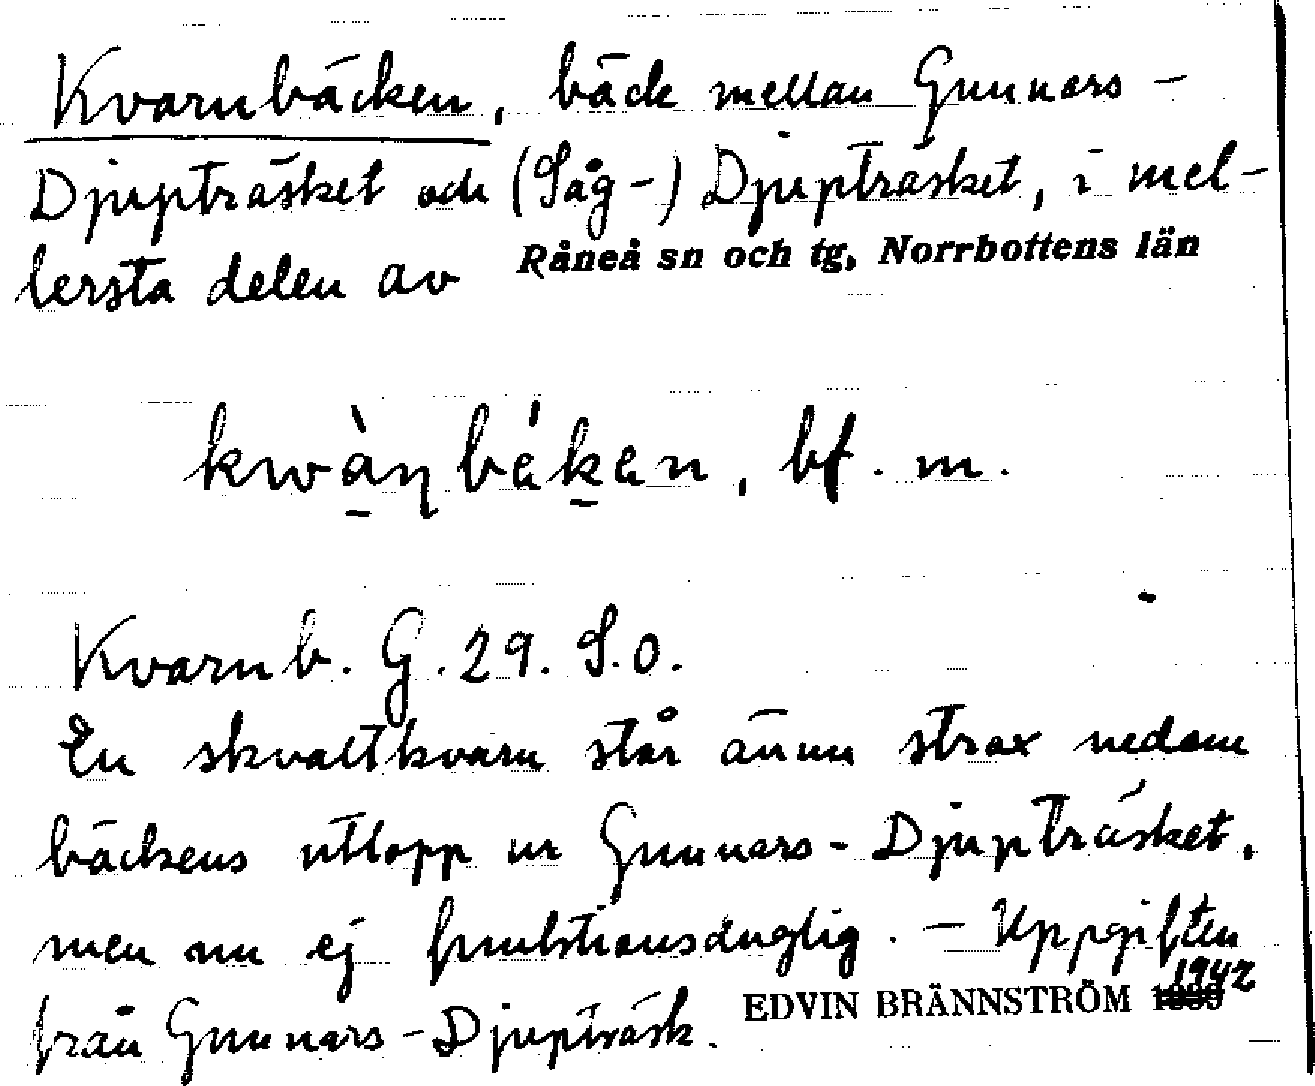 Kvarnbäcken, bäck mellan Gunnars-
Djupträsket och (Såg-) Djupträsket, i mel-
lersta delen av Råneå sn och tg, Norrbottens län
bf. m.
Kvarnb. G. 29. S.O.
En skvaltkvarn står ännu strax nedom
bäckens utlopp ur Gunnars-Djupträsket,
men nu ej funktionsduglig. – Uppgiften
från Gunnars-Djupträsk. EDVIN BRÄNNSTRÖM 1942